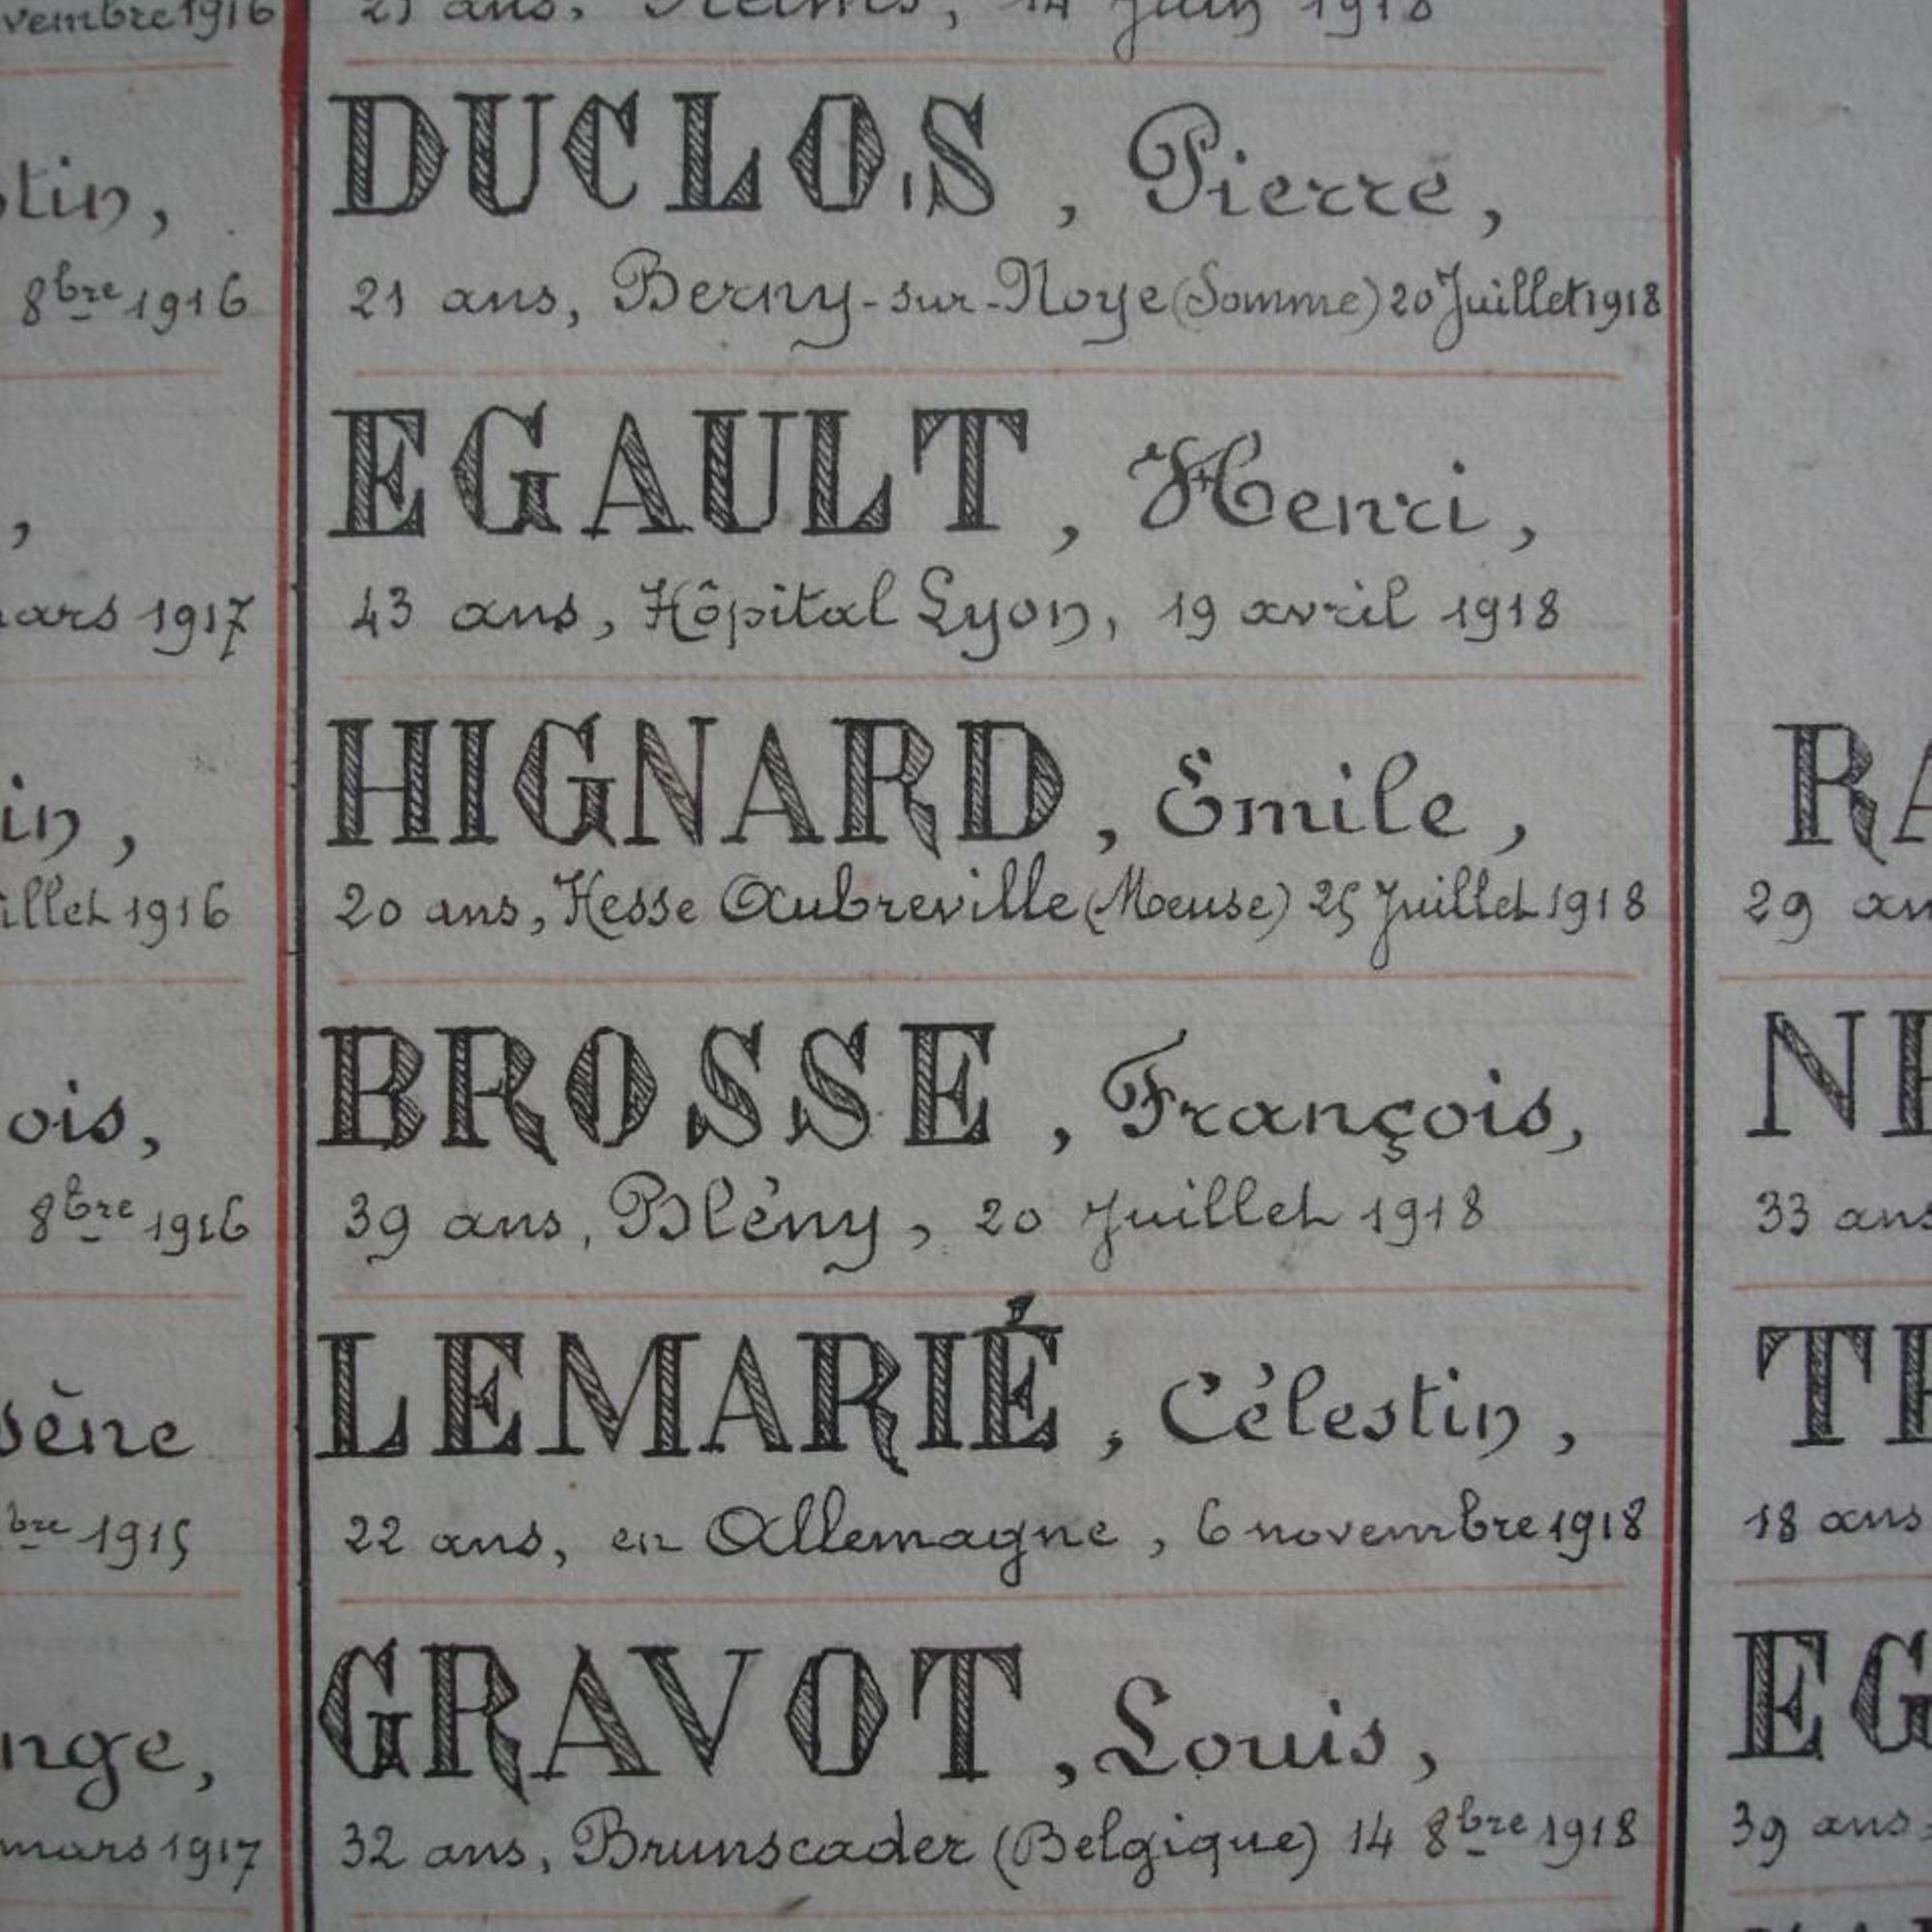 vembre 1916
stin,
8bre 1916
,
mars 1917
in,
illet 1916
ois,
8bre 1916
sène
bre 1915
nge,
mars 1917
ans, Reims, 14 juin 1918
DUCLOS, Pierre,
21 ans, Berny-sur-Noye (Somme) 20 Juillet 1918
EGAULT, Henri,
43 ans, Hôpital Lyon, 19 avril 1918
HIGNARD, Emile,
20 ans, Hesse Aubreville (Meuse) 25 Juillet 1918
BROSSE, François,
39 ans, Blény, 20 Juillet 1918
LEMARIÉ, Célestin,
22 ans, en Allemagne, 6 novembre 1918
GRAVOT, Louis,
32 ans, Brunscader (Belgique) 14 8bre 1918
RA
29 an
N
33 ans
T
18 ans
EG
39 ans